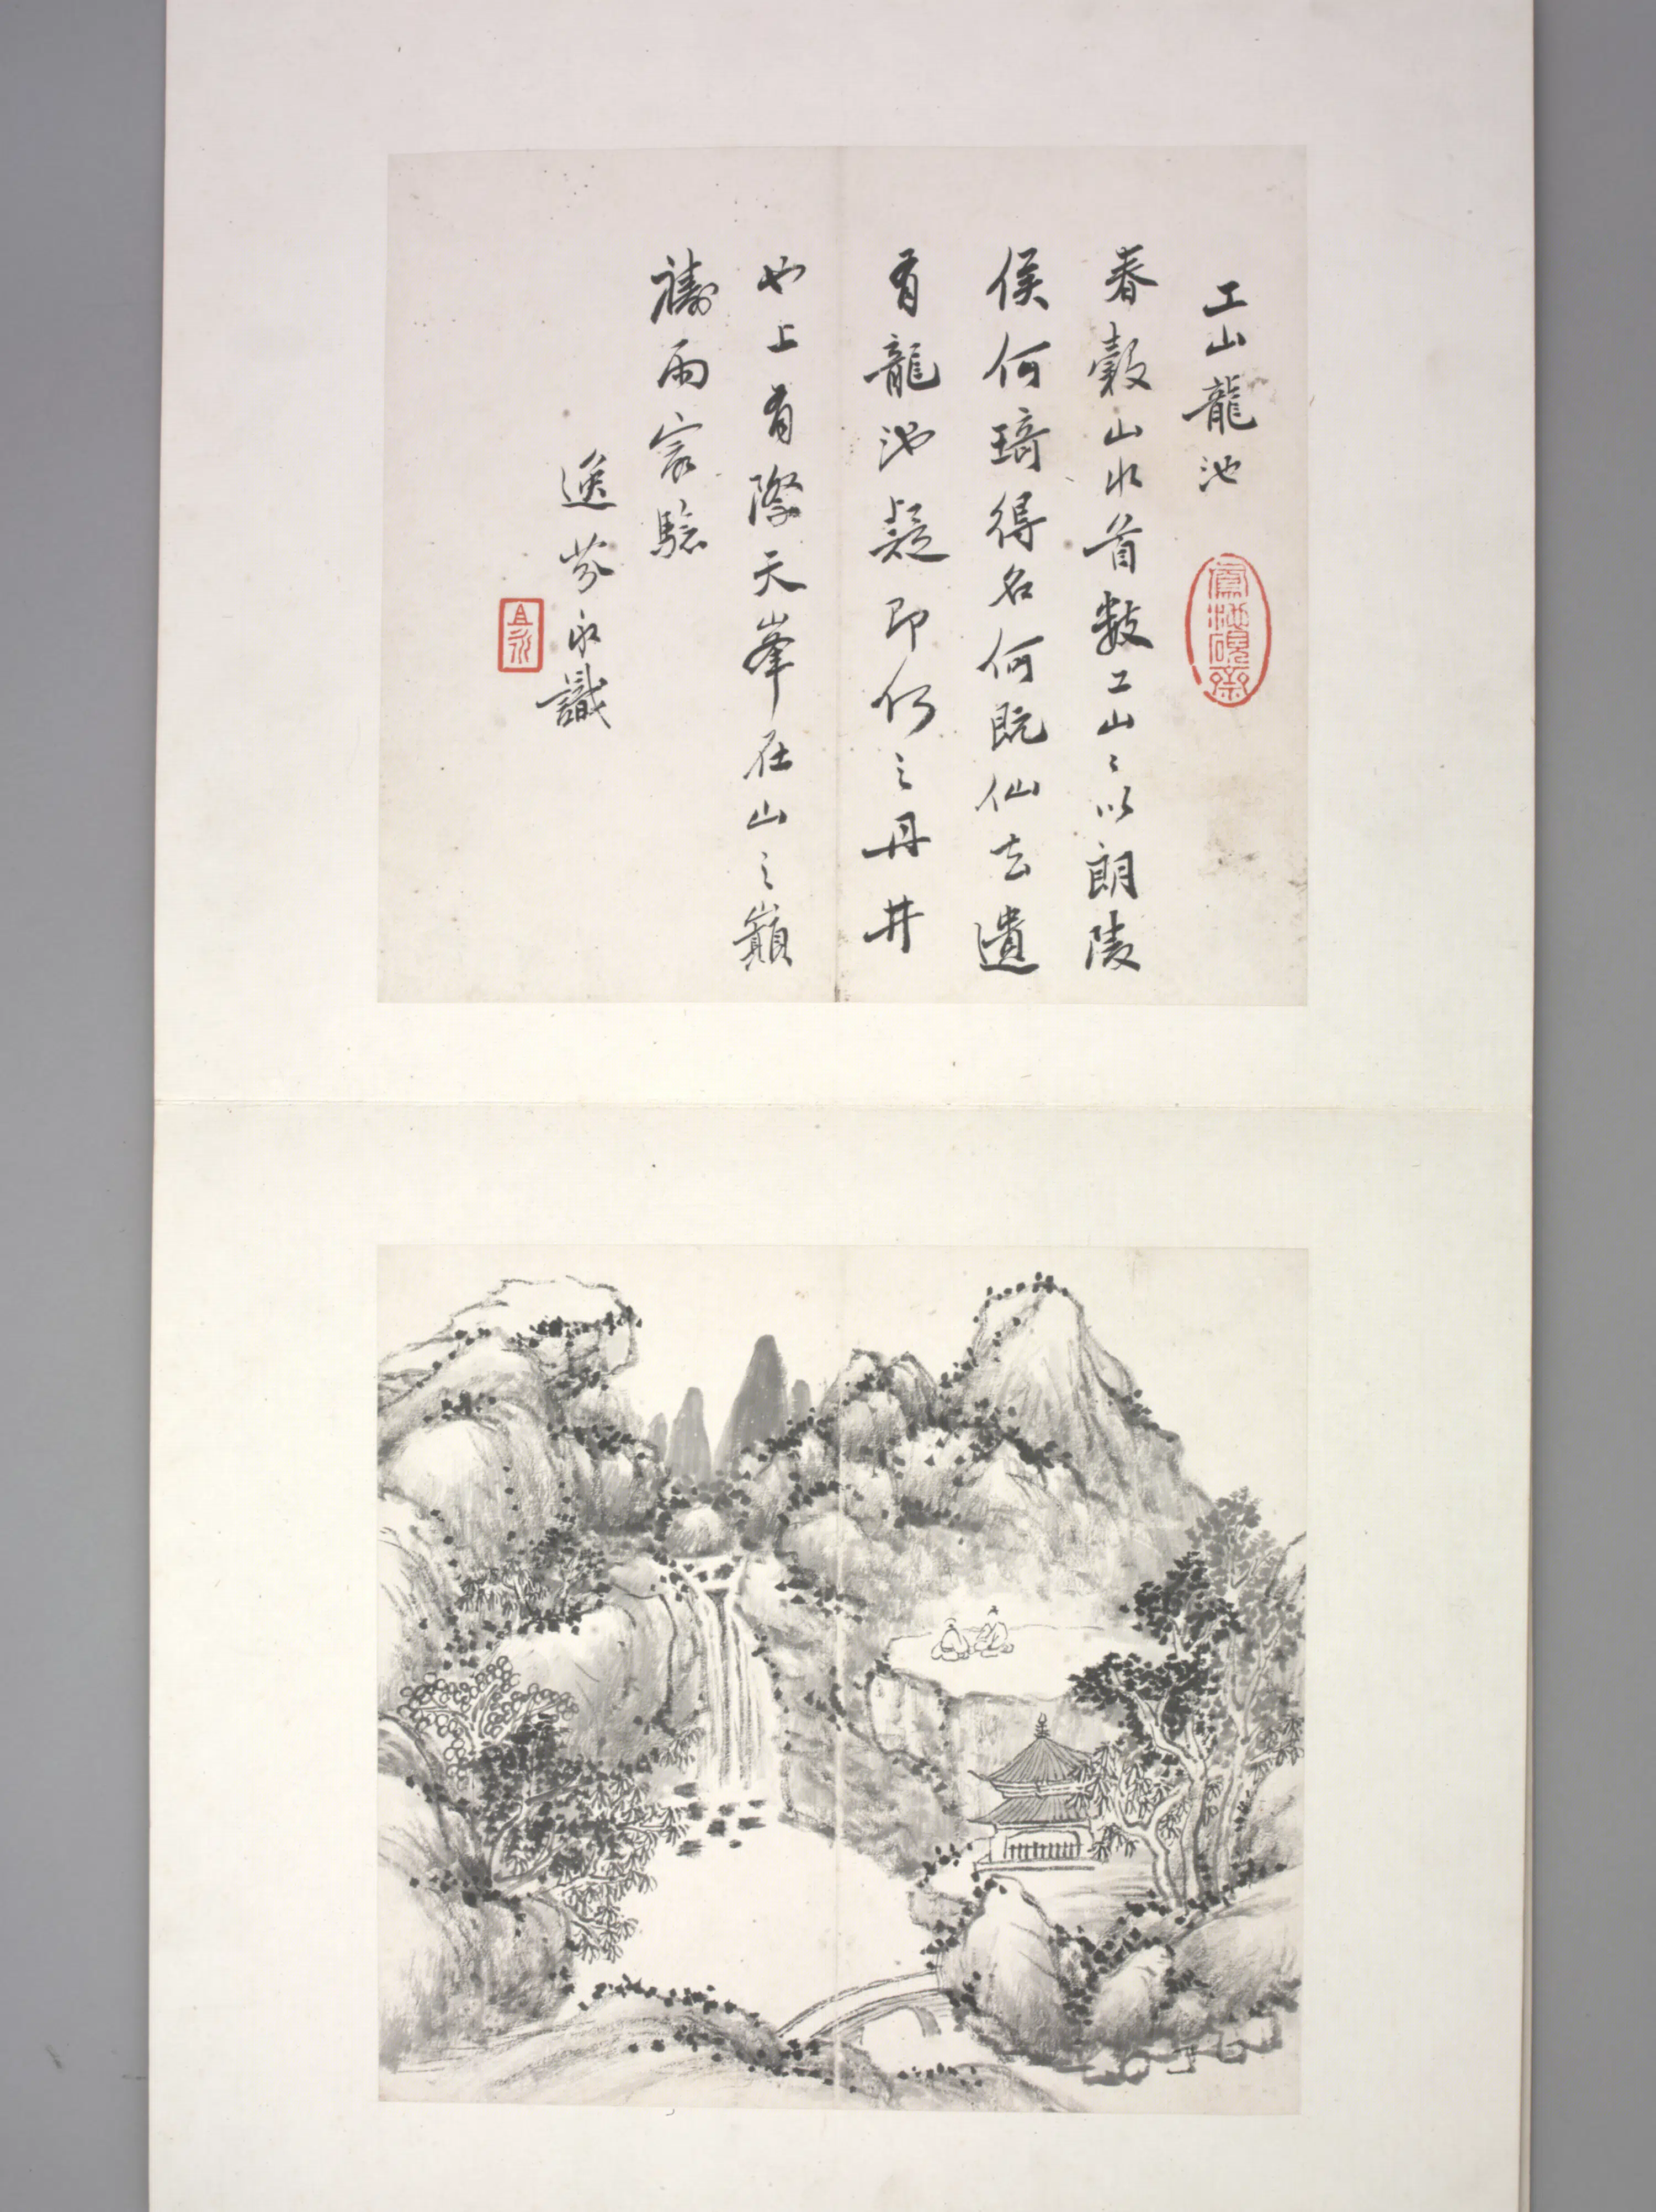 工山龍池
春穀山水首數工山〻以朗陵
侯何琦得名何既仙去遺
有龍池疑即何之丹井
也上有際天峯在山之巔
禱雨㝡驗
逸芬永識
且永